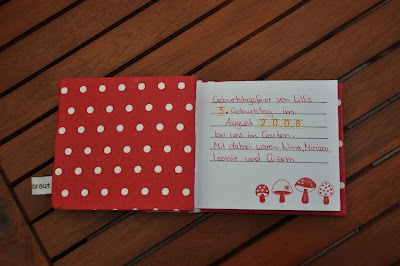 Geburtstagsfeier von Lillis
5. Geburtstag im
August 2008
bei uns im Garten.
Mit dabei waren Nina, Miriam,
Leonie und Gizem
braut